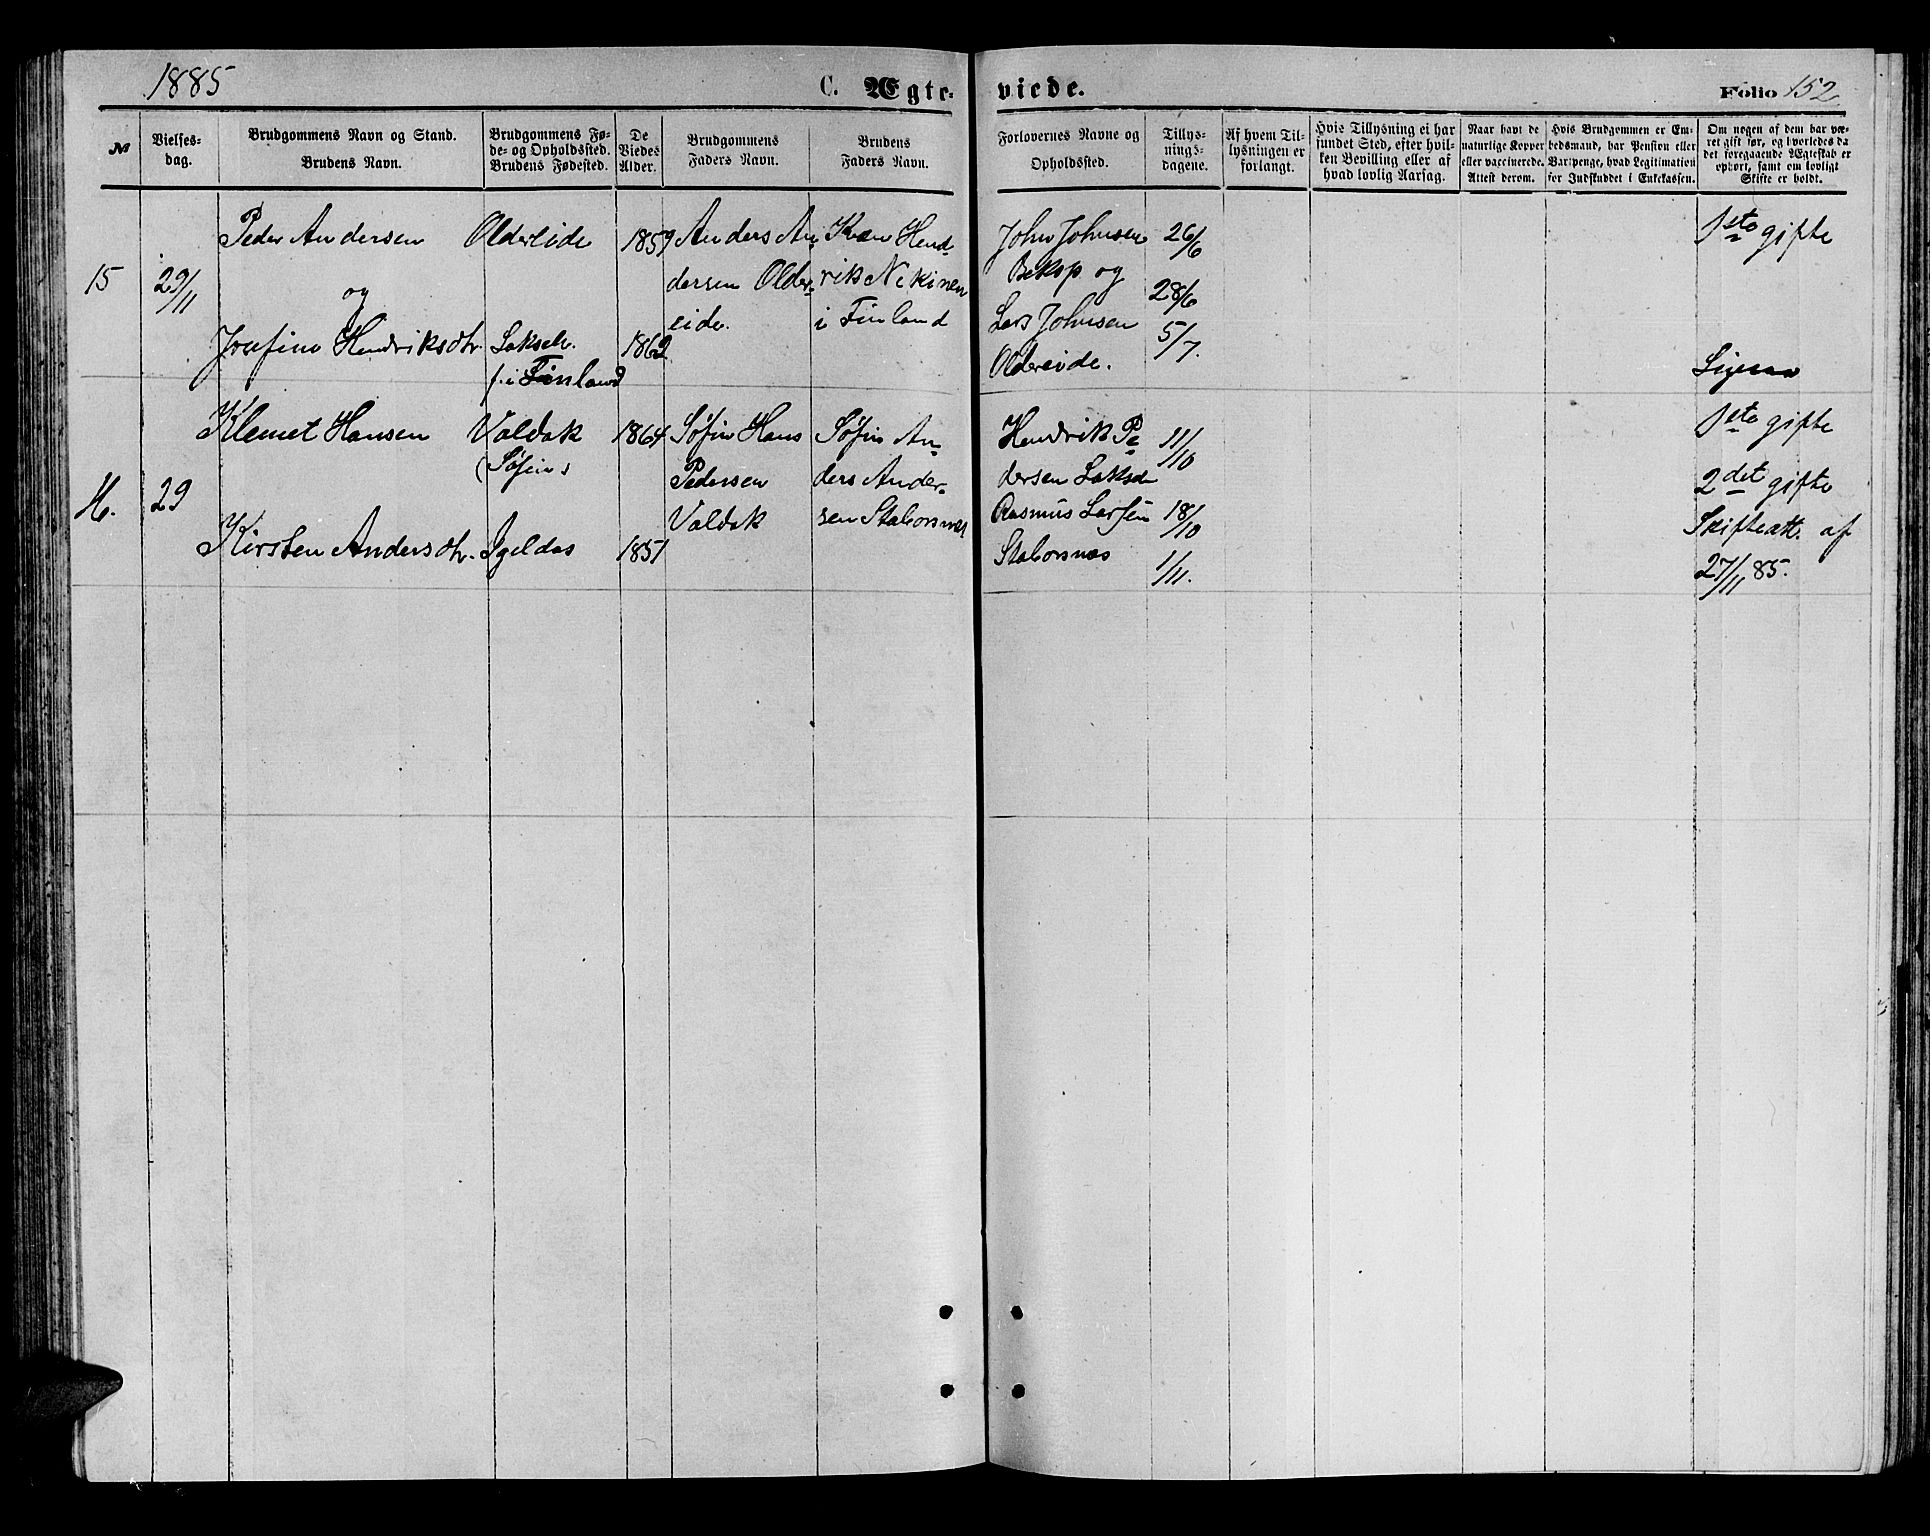 1885 C. Ægteviede. Folio 152
№
Vielses-
dag.
Brudgommens Navn og Stand.
Brudens Navn.
Brudgommens Fø-
de- og Opholdssted.
Brudens Fødested.
De
Viedes
Alder.
Brudgommens
Faders Navn.
Brudens
Faders Navn.
Forlovernes Navne og
Opholdssted.
Tillys-
nings-
dagene.
Af hvem Til-
lysningen er
forlangt.
Hvis Tillysning ei har
fundet Sted, efter hvil-
ken Bevilling eller af
hvad lovlig Aarsag.
Naar havt de
naturlige Kopper
eller vaccinerede.
Attest derom.
Hvis Brudgommen er Em-
bedsmand, har Pension eller
Vartpenge, hvad Legitimation
for Indskuddet i Enkekassen.
Om nogen af dem har væ-
ret gift før, og hvorledes da
det foregaaende Ægteskab er
ophørt, samt om lovligt
Skifte er holdt.
15
29/11
Peder Andersen
og
Josefine Hendriksdtr.
Oldereide
Lakselv.
f. i Finland
1859
1862
Anders An-
dersen Older-
eide.
Kvæn Hend-
rik Nikinen
i Finland
John Johnsen
og
Lars Johnsen
Oldereide.
26/6
28/6
5/7.
1ste gifte
Ligesaa
16.
29
Klemet Hansen
Kirsten Andersdtr.
Valdak
(Søfin)
Igeldas
1864
1851
Søfin Hans
Pedersen
Valdak
Søfin An-
ders Ander-
sen Staborsnes
Hendrik Pe-
dersen Lakselv
Rasmus Larsen
Staborsnæs
11/10
18/10
1/11.
1ste gifte
2det gifte
Skifteatt. af
27/11 85.